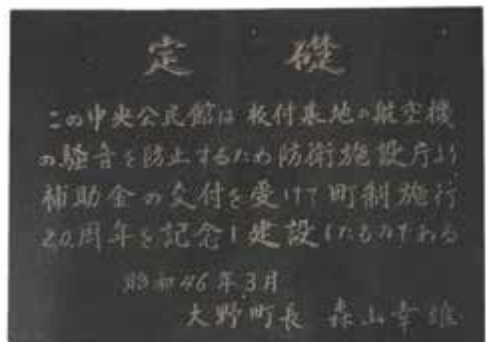 定礎
この中央公民館は板付基地の航空機
の騒音を防止するため防衛施設庁より
補助金の交付を受けて町制施行
20周年を記念し建設したものである
昭和46年3月
大野町長 森山幸雄